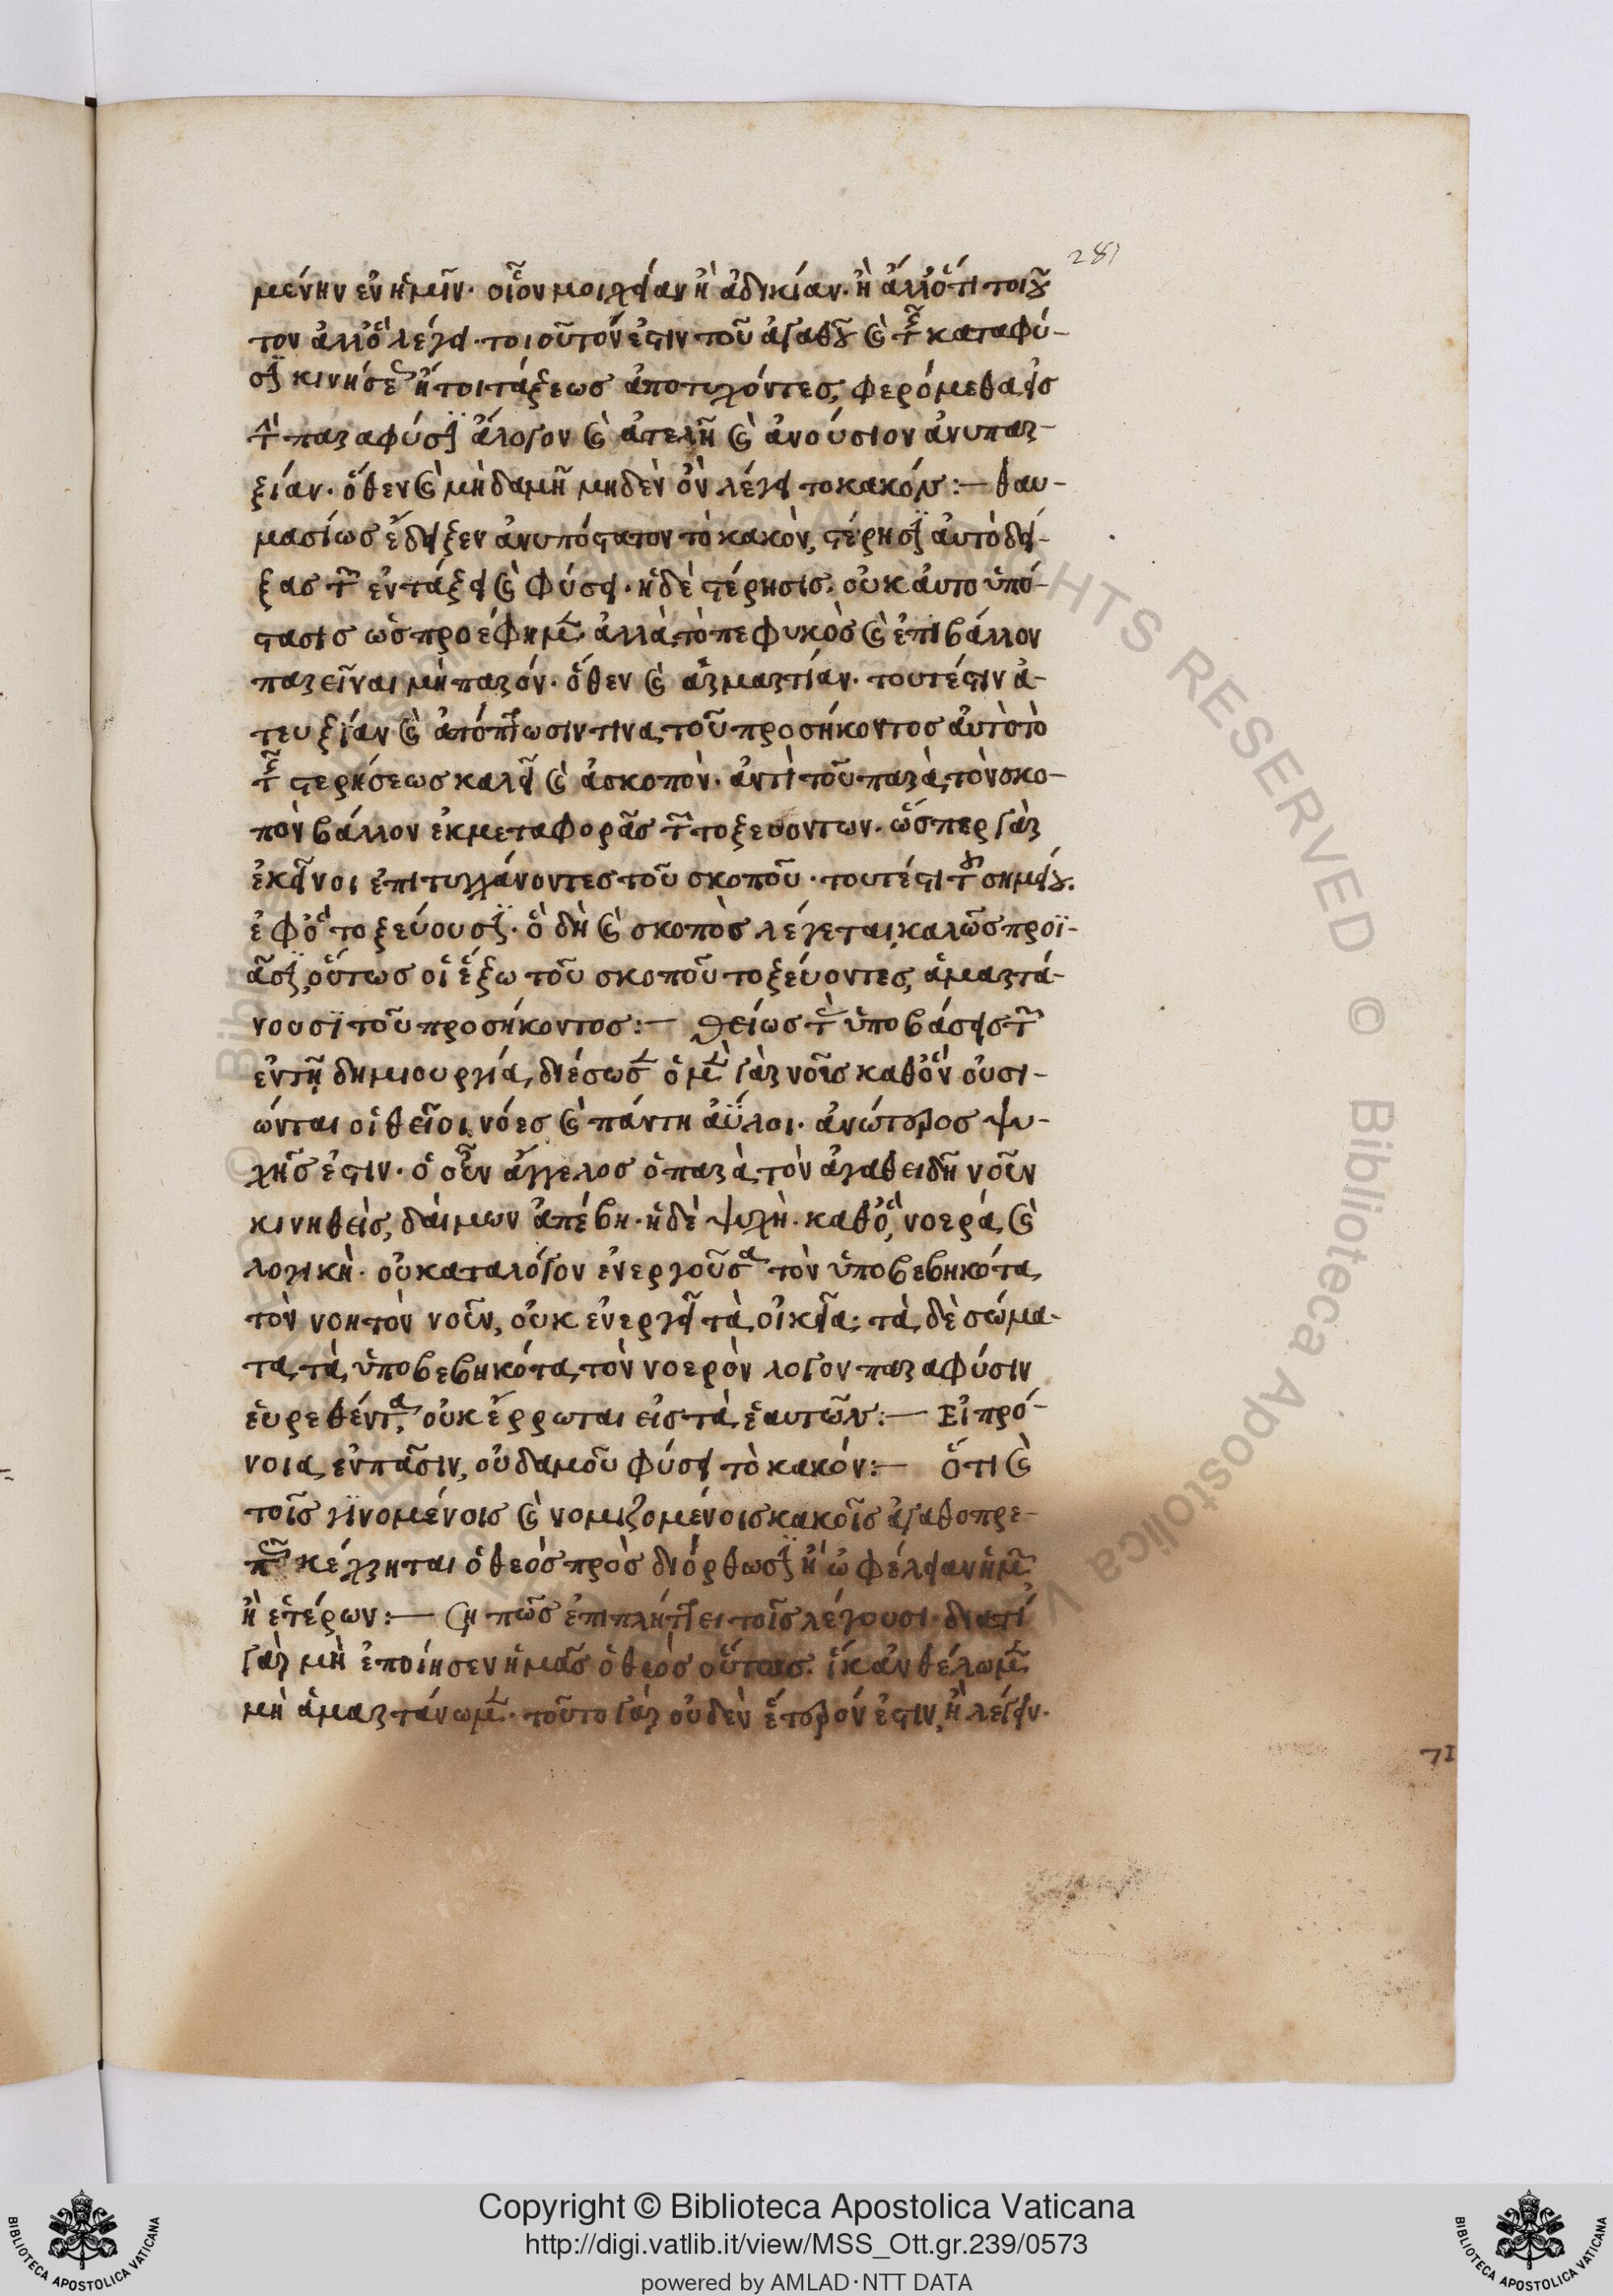 281
μένην ἐν ἡμῖν· οἷον μοιχείαν ἢ ἀδικίαν· ἢ ἄλλό τι τοιοῦ-
τον ἀλλ' ὃ λέγει· τοιοῦτόν ἐστιν τοῦ ἀγαθοῦ καὶ τῆς κατα φύ-
σιν κινήσεως ἤτοι τάξεως ἀποτυχόντες, φερόμεθα εἰς
τὴν παρα φύσιν ἄλογον καὶ ἀτελῆ καὶ ἀνούσιον ἀνυπαρ-
ξίαν· ὅθεν καὶ μηδαμῆ μηδὲν ὂν λέγει το κακόν:— θαυ-
μασίως ἔδειξεν ἀνυπόστατον τὸ κακὸν, στέρησιν ἀυτὸ δεί-
ξας τῶν ἐν τάξει καὶ φύσει· ἡ δὲ στέρησις· οὐκ ἀυτο ὑπό-
στασις ὡς προέφημεν· ἀλλὰ τὸ πεφυκὸς καὶ ἐπιβάλλον
παρεῖναι μὴ παρόν· ὅθεν καὶ ἁμαρτίαν· τουτέστιν ἀ-
τευξίαν καὶ ἀπόπτωσιν τινα τοῦ προσήκοντος αὐτὸ τὸ
τῆς στερήσεως καλεῖ καὶ ἀσκοπὸν· ἀντὶ τοῦ παρὰ τὸν σκο-
πὸν βάλλον ἐκ μεταφορᾶς τῶν τοξευόντων· ὥσπερ γὰρ
ἐκεῖνοι ἐπιτυγχάνοντες τοῦ σκοποῦ· τουτέστι τοῦ σημείου·
ἐφ' ὃ τοξεύουσιν· ὃ δὴ καὶ σκοπὸς λέγεται, καλῶς προϊ-
ᾶσιν, οὕτως οἱ ἔξω τοῦ σκοποῦ τοξεύοντες, ἁμαρτά-
νουσϊ τοῦ προσήκοντος:— Θείως τὴν ὑποβάσεις τῶν
ἐν τῇ δημιουργία, διέσωσεν ὁ μὲν γὰρ νοῦς καθ' ὃν οὐσι-
ώνται οἱ θεῖοι νόες καὶ πάντη ἀΰλοι· ἀνώτερος ψυ-
χῆς ἐστιν· ὁ οὖν ἄγγελος ὁ παρὰ τὸν ἀγαθειδῆ νοῦν
κινηθεὶς, δάιμων ἀπέβη· ἡ δὲ ψυχὴ· καθὸ, νοερά καὶ
λογικὴ· οὐ κατα λόγον ἐνεργοῦσα τὸν ὑποβεβηκότα
τὸν νοητὸν νοῦν, οὐκ ἐνεργεῖ τὰ οἰκεῖα· τὰ δὲ σώμα-
τα τὰ ὑποβεβηκότα τὸν νοερὸν λογον παρα φύσιν
ἑυρεθέντα, οὐκ ἔρρωται εἰς τὰ ἑαυτῶν:— Εἰ πρό-
νοια ἐν πᾶσιν, οὐδαμοῦ φύσει τὸ κακόν:— Ὅτι καὶ
τοῖς γϊνομένοις καὶ νομιζομένοις κακοῖς ἀγαθοπρε-
πῶς κέχρηται ὁ θεὸς πρὸς διόρθωσιν ἢ ὠφέλειαν ἡμῶν
ἢ ἑτέρων:— Ση πῶς ἐπιπλήττει τοῖς λέγουσι· διατί
γὰρ μὴ ἐποίησεν ἡμᾶς ὁ θεὸς οὕτως· ἵν' κἀν θέλωμεν
μὴ ἁμαρτάνωμεν· τοῦτο γὰρ οὐδὲν ἕτερόν ἐστιν, ἢ λέγειν·
Copyright © Biblioteca Apostolica Vaticana
http://digi.vatlib.it/view/MSS_Ott.gr.239/0573
powered by AMLAD·NTT DATA